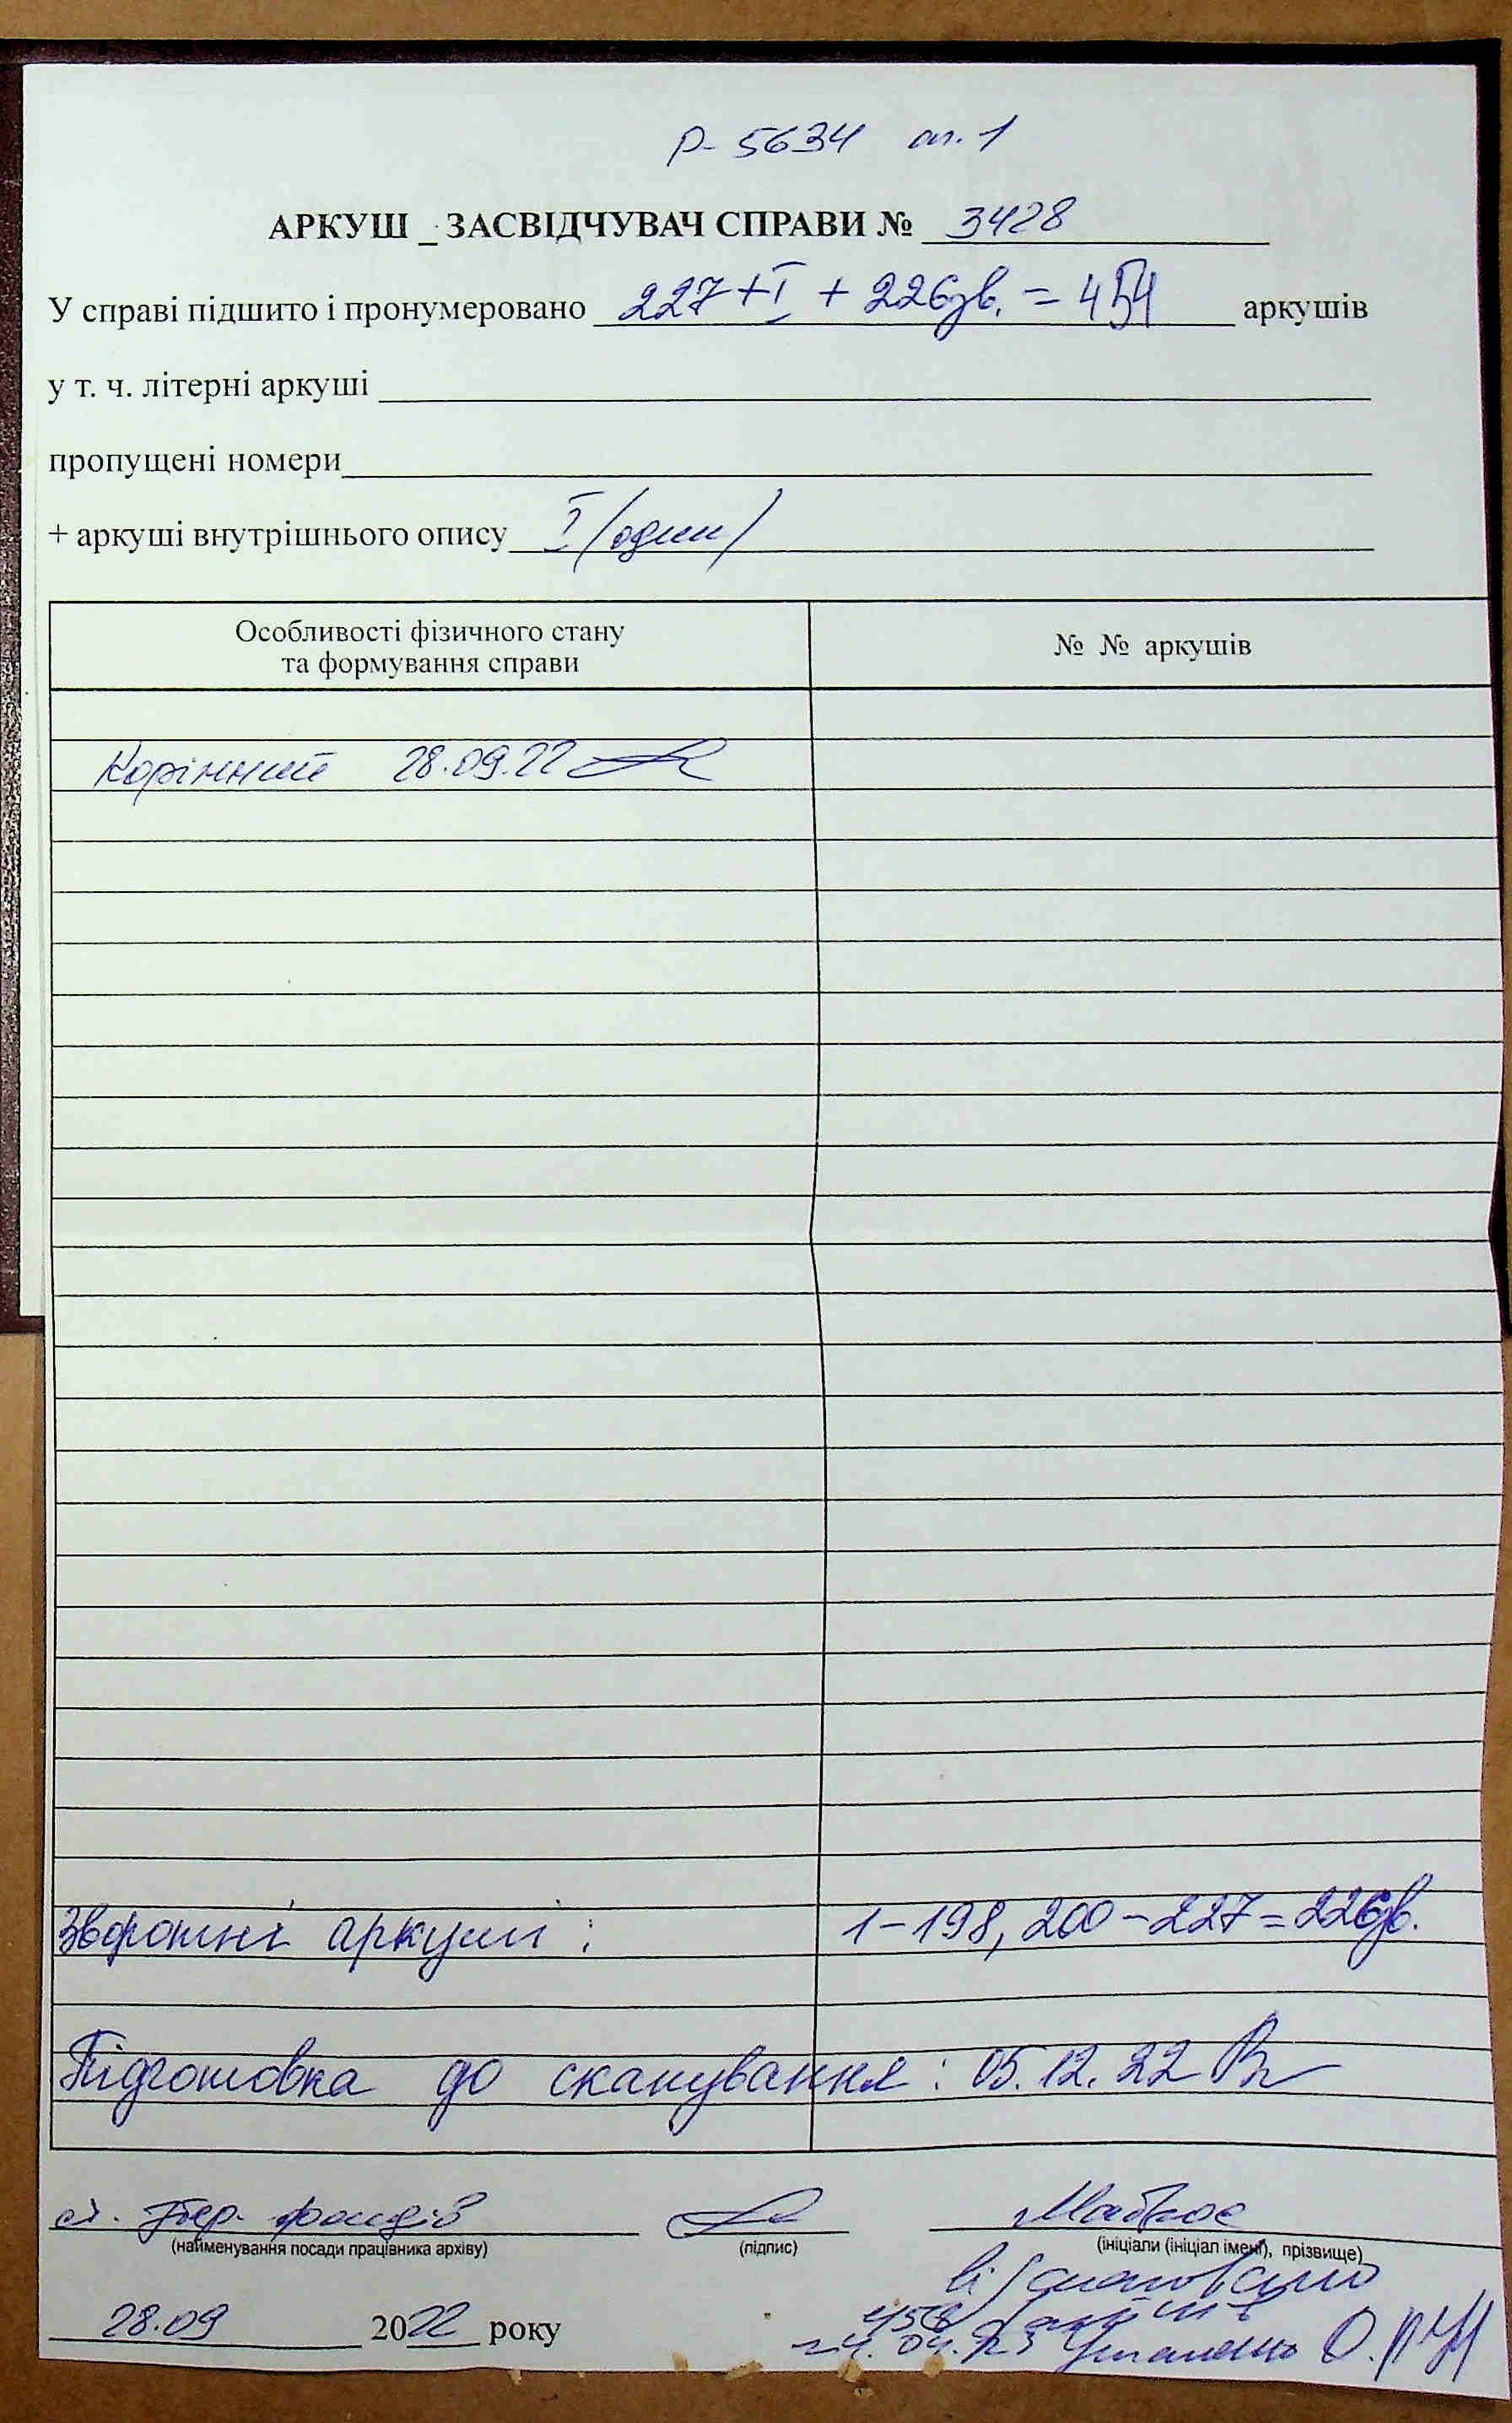 Р- 5634 оп. 1
АРКУШ _ ЗАСВІДЧУВАЧ СПРАВИ № 3428
У справі підшито і пронумеровано 227 + I + 226зв. = 454 аркушів
у т. ч. літерні аркуші
пропущені номери
+ аркуші внутрішнього опису I (один)
Особливості фізичного стану
та формування справи
№ № аркушів
Корінний 28.09.22
Зворотні аркуші : 1-198, 200-227=226зв.
Підготовка до сканування : 05.12.22
фондів
(найменування посади працівника архіву) (підпис) (ініціали (ініціал імені), прізвище)
Відскановано
28.09 2022 року
458
24.04.23